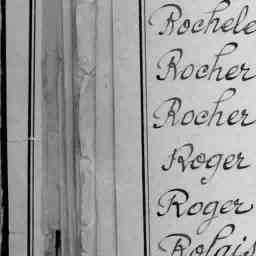 Rochele
Rocher
Rocher
Roger
Roger
Rolais